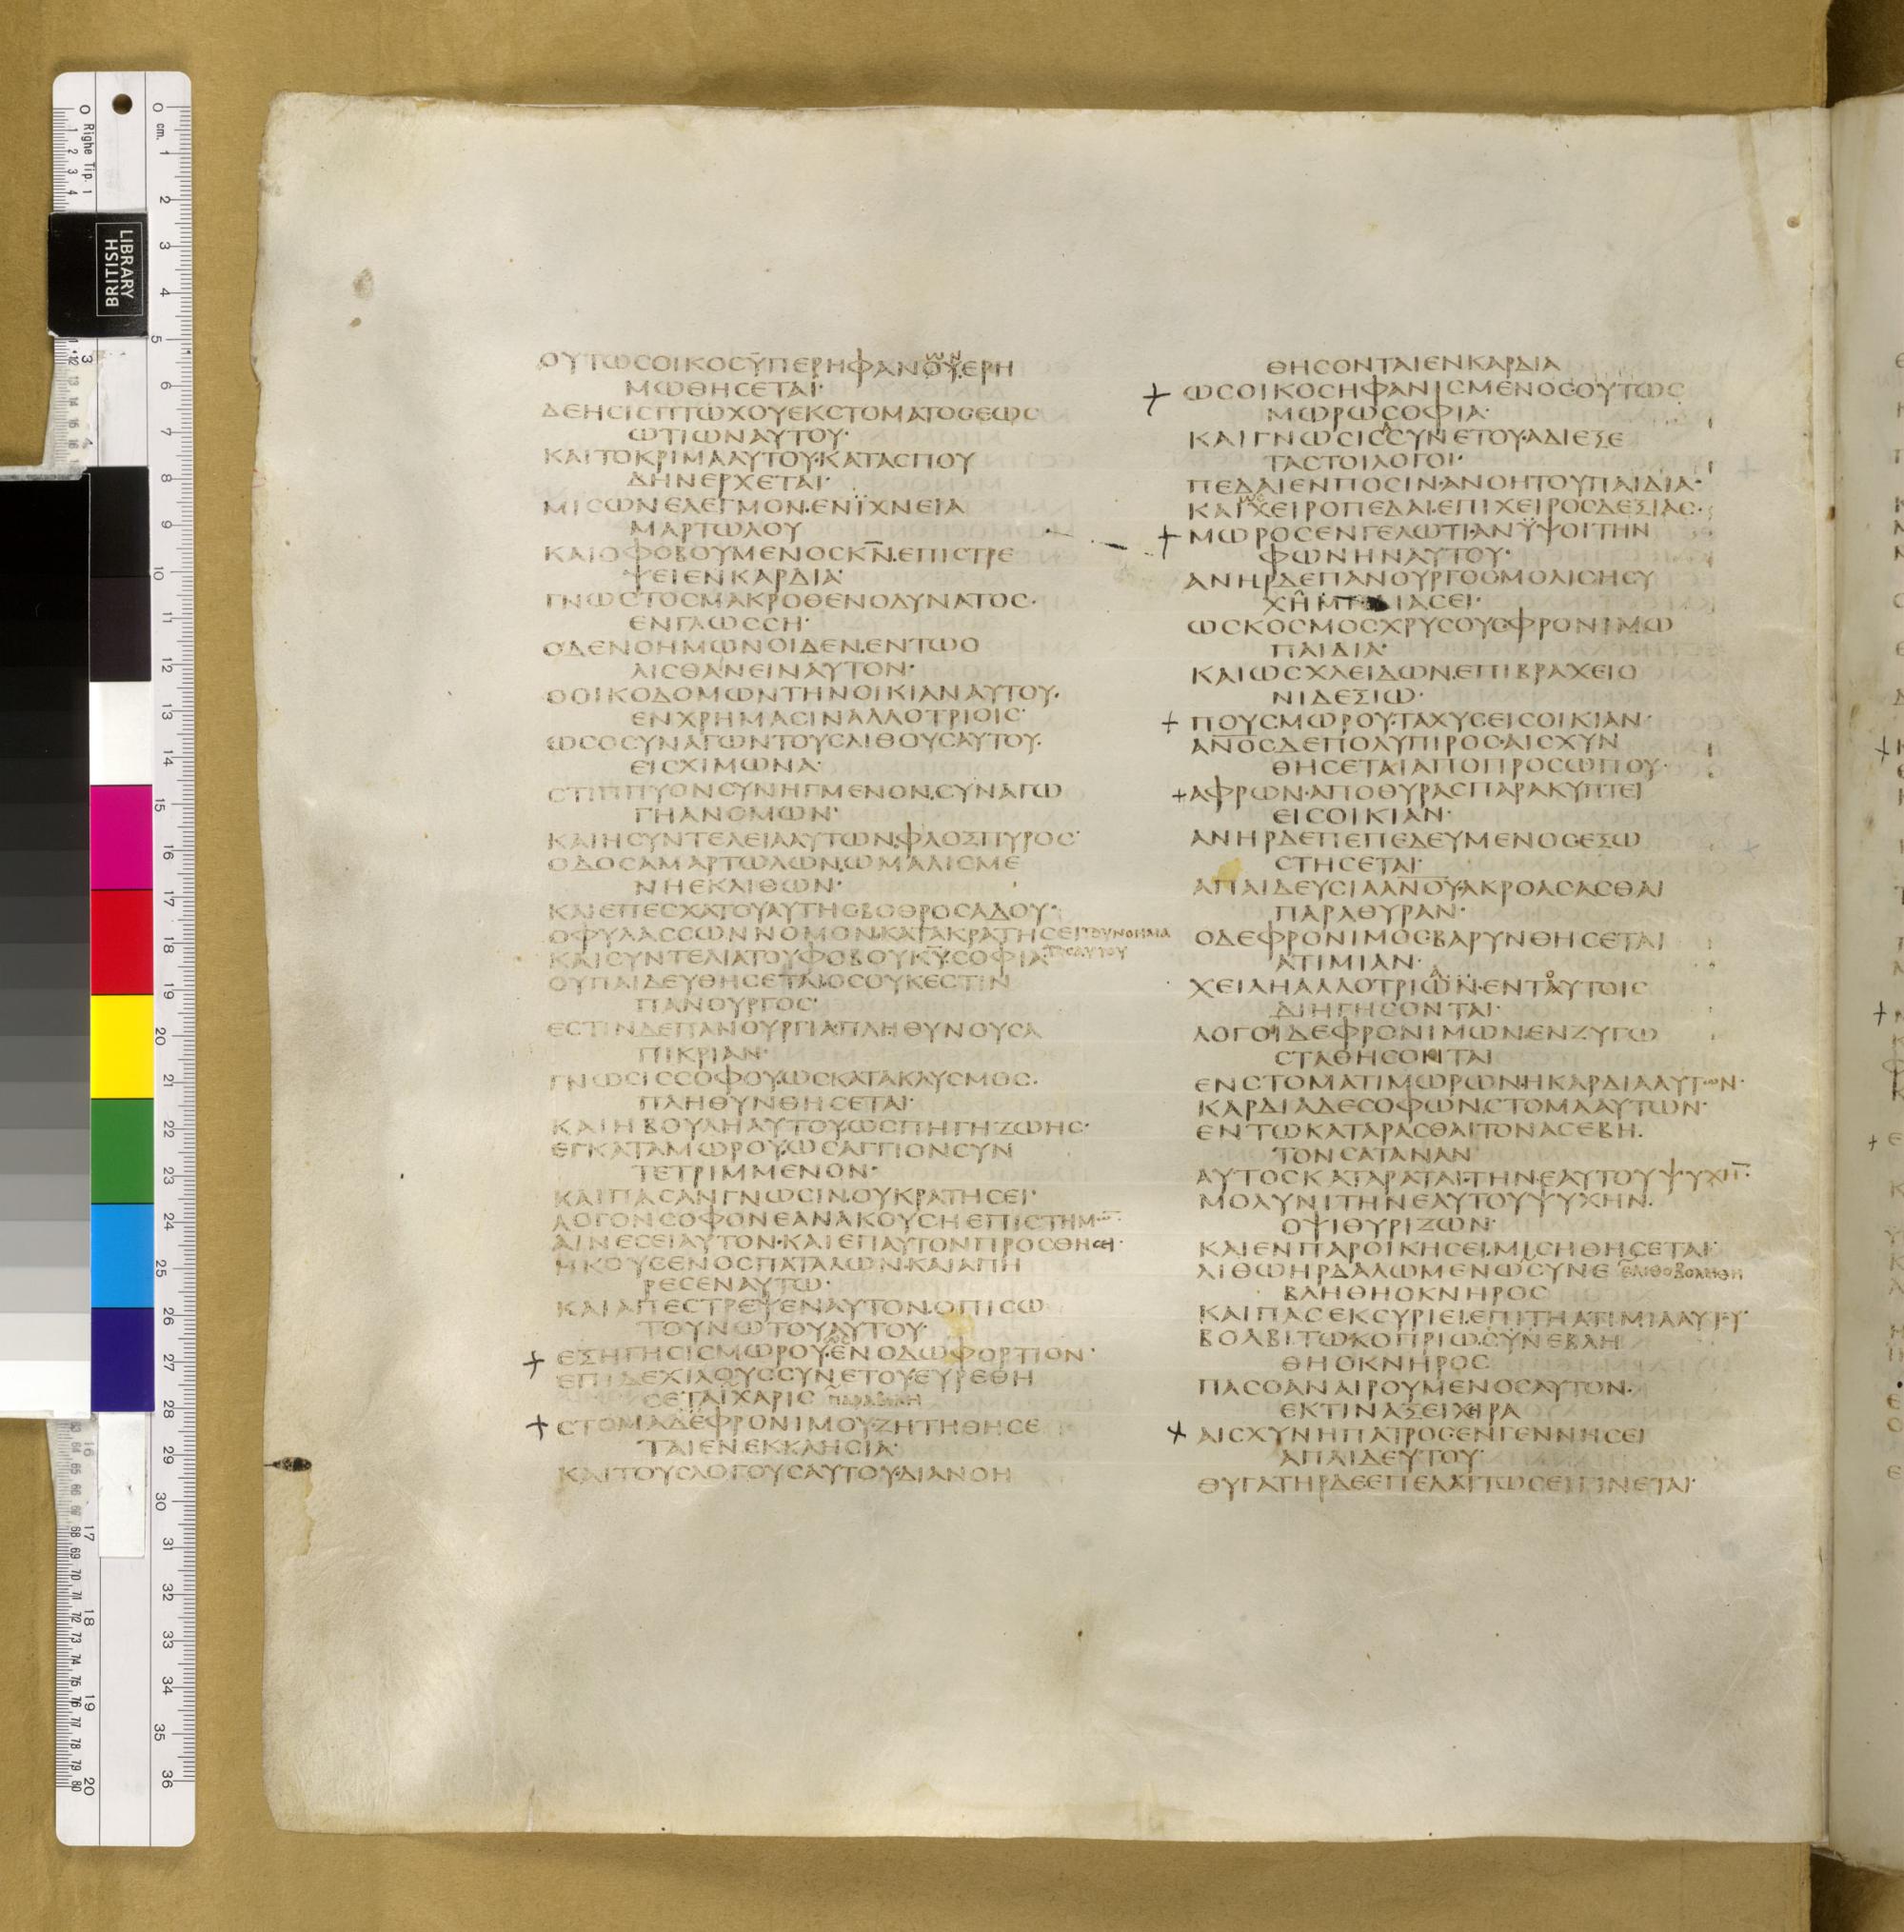 ΟΥΤΩCΟΙΚΟCΫΠΕΡΗΦΑΝΟΥΕΡΗ
ΜΩΘΗCΕΤΑΙ·
ΔΕΗCΙCΠΤΩΧΟΥΕΚCΤΟΜΑΤΟCΕΩC
ΩΤΙΩΝΑΥΤΟΥ·
ΚΑΙΤΟΚΡΙΜΑΑΥΤΟΥ·ΚΑΤΑCΠΟΥ
ΔΗΝΕΡΧΕΤΑΙ·
ΜΙCΩΝΕΛΕΓΜΟΝ·ΕΝΪΧΝΕΙΑ
ΜΑΡΤΩΛΟΥ
ΚΑΙΟΦΟΒΟΥΜΕΝΟCΚΝ̅·ΕΠΙCΤΡΕ
ΨΕΙΕΝΚΑΡΔΙΑ·
ΓΝΩCΤΟCΜΑΚΡΟΘΕΝΟΔΥΝΑΤΟC·
ΕΝΓΛΩCCΗ·
ΟΔΕΝΟΗΜΩΝΟΙΔΕΝ·ΕΝΤΩΟ
ΛΙCΘΑΝΕΙΝΑΥΤΟΝ·
ΘΟΙΚΟΔΟΜΩΝΤΗΝΟΙΚΙΑΝΑΥΤΟΥ·
ΕΝΧΡΗΜΑCΙΝΑΛΛΟΤΡΙΟΙC·
ΩCΟCΥΝΑΓΩΝΤΟΥCΛΙΘΟΥCΑΥΤΟΥ·
ΕΙCΧΙΜΩΝΑ·
CΤΙΠΠΥΟΝCΥΝΗΓΜΕΝΟΝ·CΥΝΑΓΩ
ΓΗΑΝΟΜΩΝ·
ΚΑΙΗCΥΝΤΕΛΕΙΑΑΥΤΩΝ·ΦΛΟΞΠΥΡΟC·
ΟΔΟCΑΜΑΡΤΩΛΩΝ·ΩΜΑΛΙCΜΕ
ΝΗΕΚΛΙΘΩΝ·
ΚΑΙΕΠΕCΧΑΤΟΥΑΥΤΗCΒΟΘΡΟCΑΔΟΥ·
ΟΦΥΛΑCCΩΝΝΟΜΟΝ·ΚΑΤΑΚΡΑΤΗCΕΙΤΟΥΝΟΗΜΑ
ΤΟCΑΥΤΟΥ
ΚΑΙCΥΝΤΕΛΙΑΤΟΥΦΟΒΟΥΚΥ̅·CΟΦΙΑ
ΟΥΠΑΙΔΕΥΘΗCΕΤΑΙ·ΟCΟΥΚΕCΤΙΝ
ΠΑΝΟΥΡΓΟC·
ΕCΤΙΝΔΕΠΑΝΟΥΡΓΙΑ·ΠΛΗΘΥΝΟΥCΑ
ΠΙΚΡΙΑΝ·
ΓΝΩCΙCCΟΦΟΥ·ΩCΚΑΤΑΚΛΥCΜΟC·
ΠΛΗΘΥΝΘΗCΕΤΑΙ·
ΚΑΙΗΒΟΥΛΗΑΥΤΟΥ·ΩCΠΗΓΗΖΩΗC·
ΕΓΚΑΤΑΜΩΡΟΥ·ΩCΑΓΓΙΟΝCΥΝ
ΤΕΤΡΙΜΜΕΝΟΝ·
ΚΑΙΠΑCΑΝΓΝΩCΙΝ·ΟΥΚΡΑΤΗCΕΙ·
ΛΟΓΟΝCΟΦΟΝΕΑΝΑΚΟΥCΗΕΠΙCΤΗΜΩ̅·
ΑΙΝΕCΕΙΑΥΤΟΝ·ΚΑΙΕΠΑΥΤΟΝΠΡΟCΘΗCΕΙ·
ΗΚΟΥCΕΝΟCΠΑΤΑΛΩΝ·ΚΑΙΑΠΗ
ΡΕCΕΝΑΥΤΩ·
ΚΑΙΑΠΕCΤΡΕΨΕΝΑΥΤΟΝ·ΟΠΙCΩ
ΤΟΥΝΩΤΟΥΑΥΤΟΥ·
ΕΞΗΓΗCΙCΜΩΡΟΥ·ΕΝΟΔΩΦΟΡΤΙΟΝ·
ΕΠΙΔΕΧΙΛΟΥCCΥΝΕΤΟΥ·ΕΥΡΕΘΗ
CΕΤΑΙΧΑΡΙC
CΤΟΜΑΔΕΦΡΟΝΙΜΟΥ·ΖΗΤΗΘΗCΕ
ΤΑΙΕΝΕΚΚΛΗCΙΑ·
ΚΑΙΤΟΥCΛΟΓΟΥCΑΥΤΟΥ·ΔΙΑΝΟΗ
ΘΗCΟΝΤΑΙΕΝΚΑΡΔΙΑ
ΩCΟΙΚΟCΗΦΑΝΙCΜΕΝΟCΟΥΤΩC
ΜΩΡΩCΟΦΙΑ·
ΚΑΙΓΝΩCΙCCΥΝΕΤΟΥ·ΑΔΙΕΞΕ
ΤΑCΤΟΙΛΟΓΟΙ·
ΠΕΔΑΙΕΝΠΟCΙΝ·ΑΝΟΗΤΟΥΠΑΙΔΙΑ·
ΚΑΙΧΕΙΡΟΠΕΔΑΙ·ΕΠΙΧΕΙΡΟCΔΕΞΙΑC·
ΜΩΡΟCΕΝΓΕΛΩΤΙ·ΑΝΫΨΟΙΤΗΝ
ΦΩΝΗΝΑΥΤΟΥ·
ΑΝΗΡΔΕΠΑΝΟΥΡΓΟCΜΟΛΙCΗCΥ
ΧΗΜΙΔΙΑCΕΙ·
ΩCΚΟCΜΟCΧΡΥCΟΥCΦΡΟΝΙΜΩ
ΠΑΙΔΙΑ·
ΚΑΙΩCΧΛΕΙΔΩΝ·ΕΠΙΒΡΑΧΕΙΟ
ΝΙΔΕΞΙΩ·
ΠΟΥCΜΩΡΟΥ·ΤΑΧΥCΕΙCΟΙΚΙΑΝ·
ΑΝΟ̅CΔΕΠΟΛΥΠΙΡΟC·ΑΙCΧΥΝ
ΘΗCΕΤΑΙΑΠΟΠΡΟCΩΠΟΥ·
ΑΦΡΩΝ·ΑΠΟΘΥΡΑCΠΑΡΑΚΥΠΤΕΙ
ΕΙCΟΙΚΙΑΝ·
ΑΝΗΡΔΕΠΕΠΕΔΕΥΜΕΝΟCΕΞΩ
CΤΗCΕΤΑΙ·
ΑΠΑΙΔΕΥCΙΑΑΝΟΥ̅·ΑΚΡΟΑCΑCΘΑΙ
ΠΑΡΑΘΥΡΑΝ·
ΟΔΕΦΡΟΝΙΜΟCΒΑΡΥΝΘΗCΕΤΑΙ
ΑΤΙΜΙΑΝ·
ΧΕΙΛΗΑΛΛΟΤΡΙΩΝ·ΕΝΤΑΥΤΟΙC
ΔΙΗΓΗCΟΝΤΑΙ·
ΛΟΓΟΙΔΕΦΡΟΝΙΜΩΝ·ΕΝΖΥΓΩ
CΤΑΘΗCΟΝΤΑΙ
ΕΝCΤΟΜΑΤΙΜΩΡΩΝ·ΗΚΑΡΔΙΑΑΥΤΩΝ·
ΚΑΡΔΙΑΔΕCΟΦΩΝ·CΤΟΜΑΑΥΤΩΝ·
ΕΝΤΩΚΑΤΑΡΑCΘΑΙΤΟΝΑCΕΒΗ·
ΤΟΝCΑΤΑΝΑΝ
ΑΥΤΟCΚΑΤΑΡΑΤΑΙ·ΤΗΝΕΑΥΤΟΥΨΥΧΗ̅·
ΜΟΛΥΝΙΤΗΝΕΑΥΤΟΥΨΥΧΗΝ·
ΟΨΙΘΥΡΙΖΩΝ·
ΚΑΙΕΝΠΑΡΟΙΚΗCΕΙ·ΜΙCΗΘΗCΕΤΑΙ·
ΛΙΘΩΗΡΔΑΛΩΜΕΝΩCΥΝΕ ΕΛΙΘΟΒΟΛΗΘΗ
ΒΛΗΘΗΟΚΝΗΡΟC
ΚΑΙΠΑCΕΚCΥΡΙΕΙ·ΕΠΙΤΗΑΤΙΜΙΑΑΥΤΟΥ·
ΒΟΛΒΙΤΩΚΟΠΡΙΩ·CΥΝΕΒΛΗ
ΘΗΟΚΝΗΡΟC
ΠΑCΟΑΝΑΙΡΟΥΜΕΝΟCΑΥΤΟΝ·
ΕΚΤΙΝΑΞΕΙΧΕΙΡΑ
ΑΙCΧΥΝΗΠΑΤΡΟCΕΝΓΕΝΝΗCΕΙ
ΑΠΑΙΔΕΥΤΟΥ·
ΘΥΓΑΤΗΡΔΕΕΠΕΛΑΤΤΩCΕΙΓΙΝΕΤΑΙ·
BRITISH
LIBRARY
cm.
Righe Tip. 1